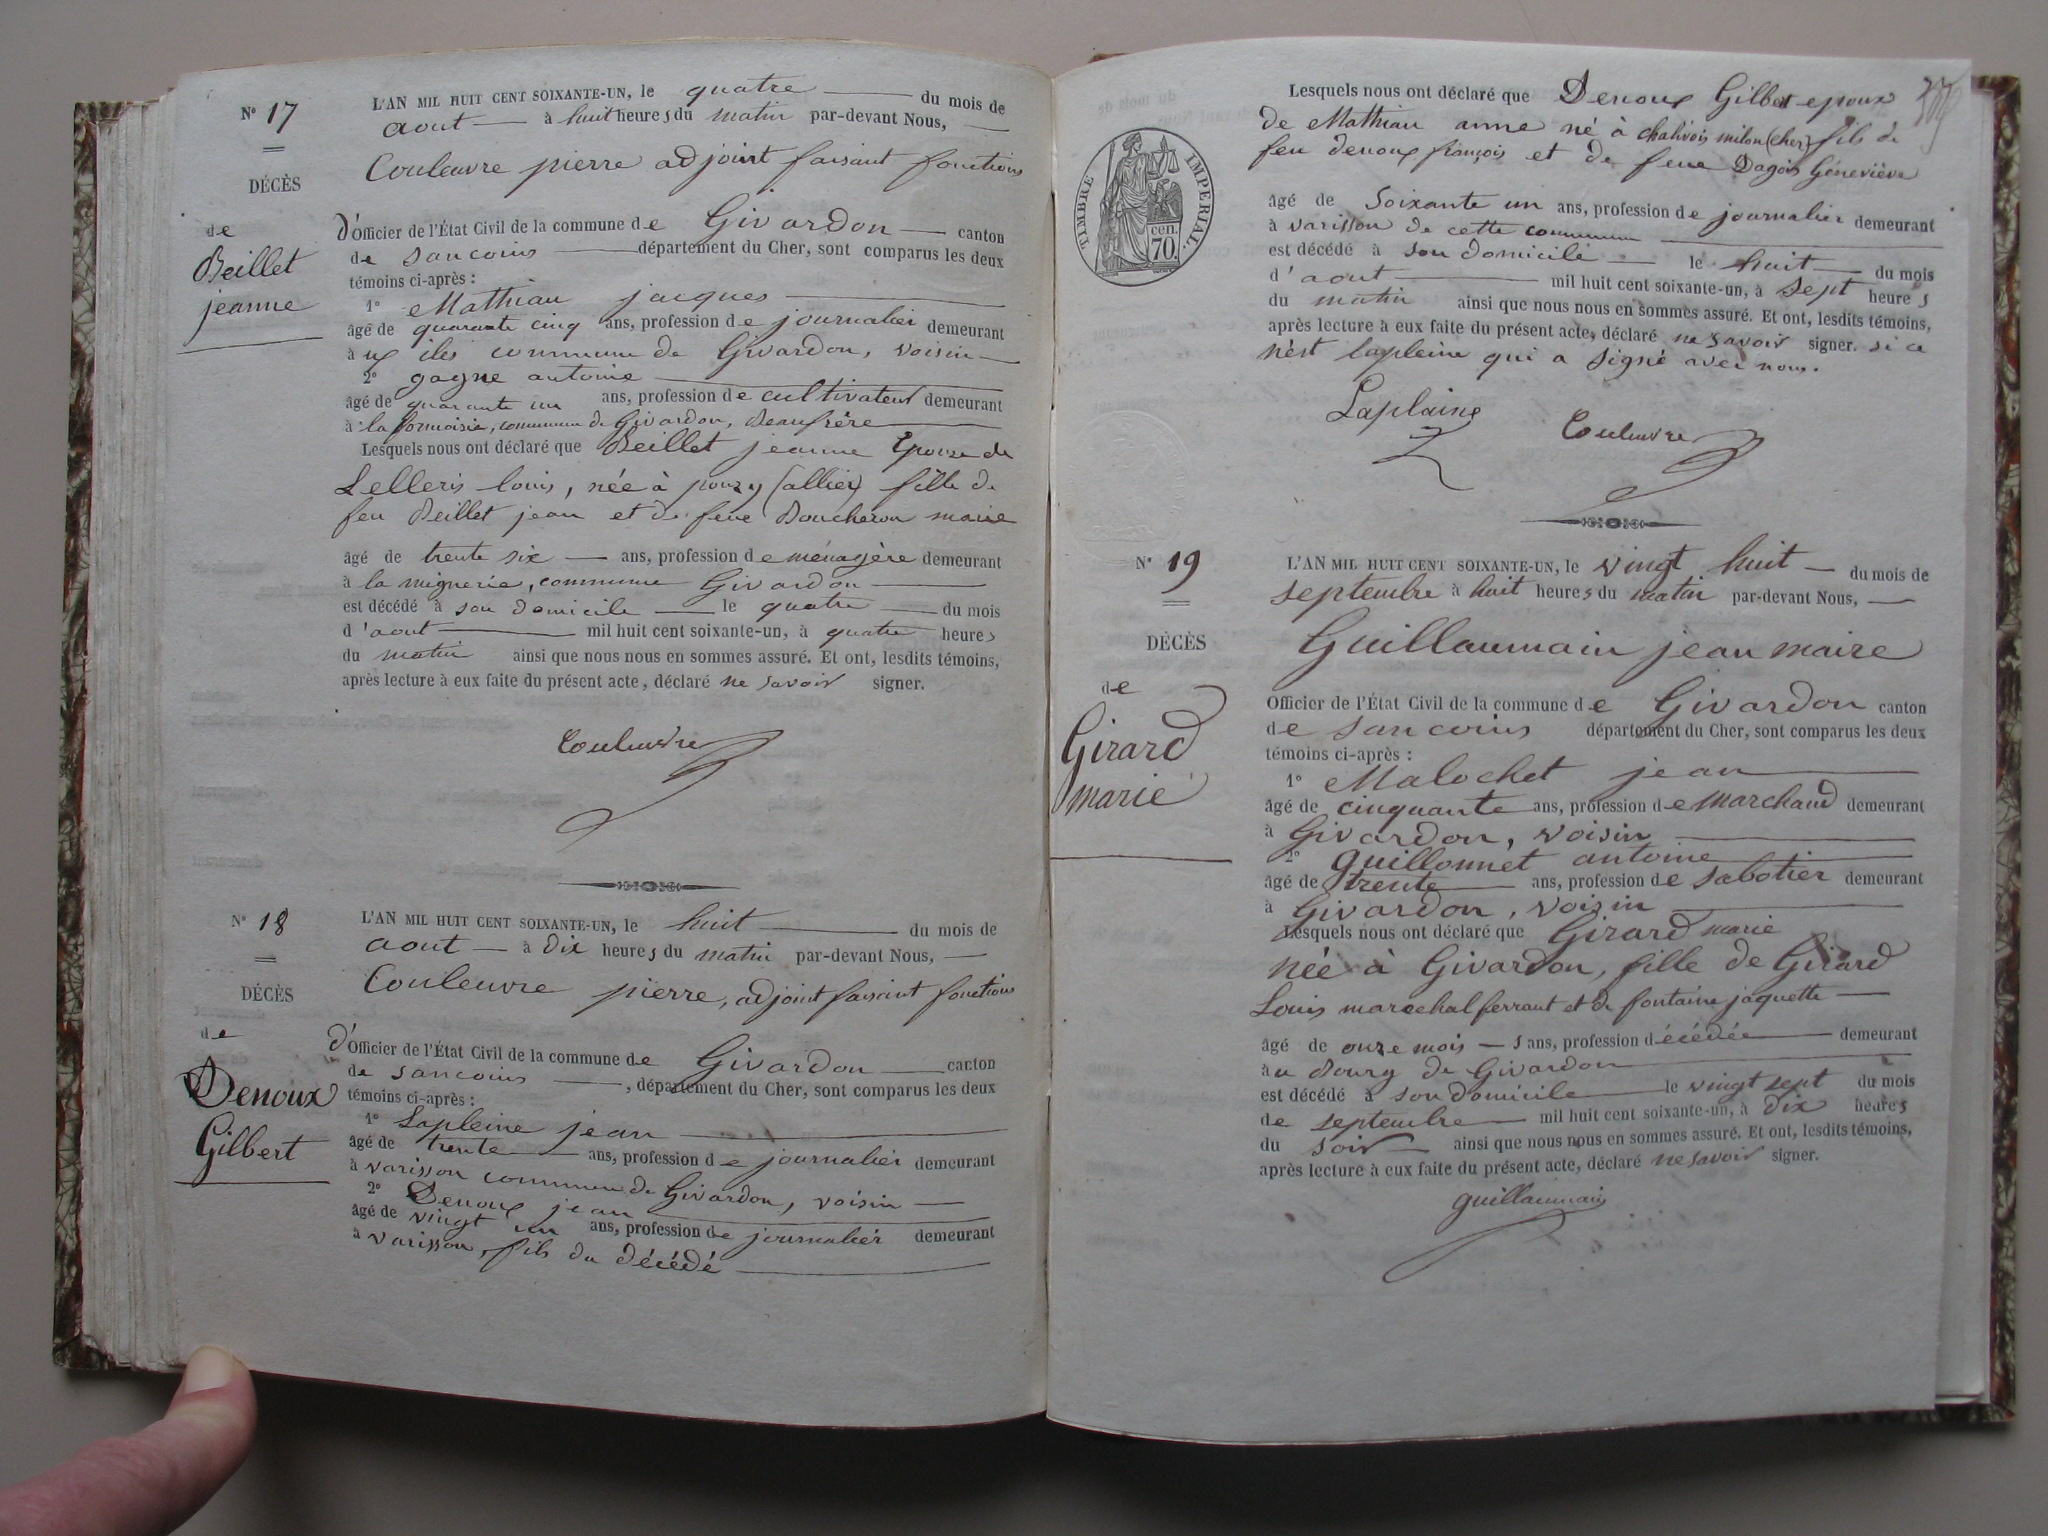 N° 17
DÉCÈS
de
Beillet
jeanne
L'AN MIL HUIT CENT SOIXANTE-UN, le quatre du mois de
aout à huit heures du matin par-devant Nous,
Couleuvre pierre adjoint faisant fonctions
d'Officier de l'État Civil de la commune de Givardon canton
de sancoins département du Cher, sont comparus les deux
témoins ci-après :
1° Mathiau jacques
âgé de quarante cinq ans, profession de journalier demeurant
à ux iles commune de Givardon, voisin
2° gagne antoine
âgé de quarante un ans, profession de cultivateur demeurant
à la commune de Givardon, Beaufrère
Lesquels nous ont déclaré que Beillet jeanne Epouse de
Lelleris louis, née à pouzy (allier) fille de
feu Beillet jean et de feue Boucheron marie
âgé de trente six ans, profession de ménagère demeurant
à la mignerie, commune Givardon
est décédé à son domicile le quatre du mois
d'aout mil huit cent soixante-un, à quatre heures
du matin ainsi que nous nous en sommes assuré. Et ont, lesdits témoins,
après lecture à eux faite du présent acte, déclaré ne savoir signer.
Couleuvre
N° 18
DÉCÈS
de
Denoux
Gilbert
L'AN MIL HUIT CENT SOIXANTE-UN, le huit du mois de
aout à dix heures du matin par-devant Nous,
Couleuvre pierre, adjoint faisant fonctions
d'Officier de l'État Civil de la commune de Givardon canton
de sancoins, département du Cher, sont comparus les deux
témoins ci-après :
1° Lapleine jean
âgé de trente ans, profession de journalier demeurant
à varisson commune de Givardon, voisin
2° Denoux jean
âgé de vingt un ans, profession de journalier demeurant
à varisson, fils du décédé
Lesquels nous ont déclaré que Denoux Gilbert epoux
de Mathiau anne né à chalivois milon (cher) fils de
feu denoux françois et de feue Dagois Géneviève
TIMBRE IMPERIAL.
70 cen.
âgé de soixante un ans, profession de journalier demeurant
à varisson de cette commune
est décédé à son domicile le huit du mois
d'aout mil huit cent soixante-un, à sept heures
du matin ainsi que nous nous en sommes assuré. Et ont, lesdits témoins,
après lecture à eux faite du présent acte, déclaré ne savoir signer. si ce
n'est lapleine qui a signé avec nous.
Laplaine Couleuvre
N° 19
DÉCÈS
de
Girard
marie
L'AN MIL HUIT CENT SOIXANTE-UN, le vingt huit du mois de
septembre à huit heures du matin par-devant Nous,
Guillaumain jean maire
Officier de l'État Civil de la commune de Givardon canton
de sancoins département du Cher, sont comparus les deux
témoins ci-après :
1° Malochet jean
âgé de cinquante ans, profession de marchand demeurant
à Givardon, voisin
2° guillonnet antoine
âgé de trente ans, profession de sabotier demeurant
à Givardon, voisin
Lesquels nous ont déclaré que Girard marie
née à Givardon, fille de Girard
Louis marechal ferrant et de fontaine jaquette
âgé de onze mois s ans, profession décédée demeurant
à u Bourg de Givardon
est décédé à son domicile le vingt sept du mois
de septembre mil huit cent soixante-un, à dix heures
du soir ainsi que nous nous en sommes assuré. Et ont, lesdits témoins,
après lecture à eux faite du présent acte, déclaré ne savoir signer.
guillaumain